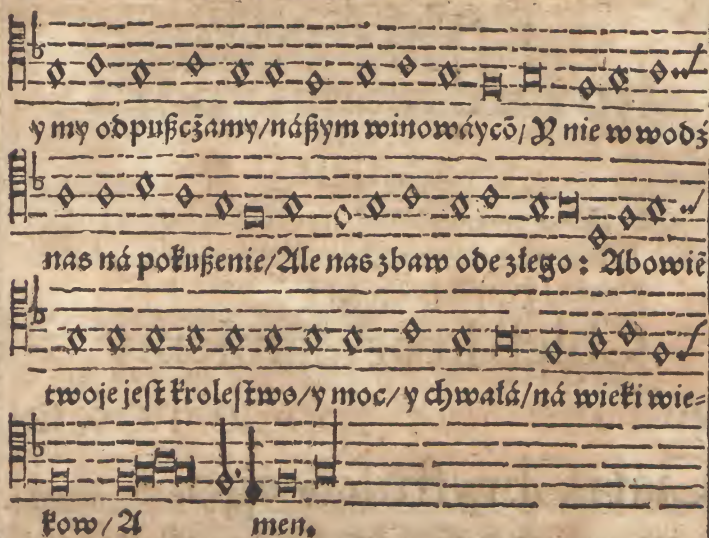 y my odpußcżamy/náßym winowáycō/ Y nie w wodź
nas ná pokußenie/Ale nas zbaw ode złego: Abowiē
twoje jest krolestwo/y moc/y chwałá/ná wieki wie=
kow/A men.